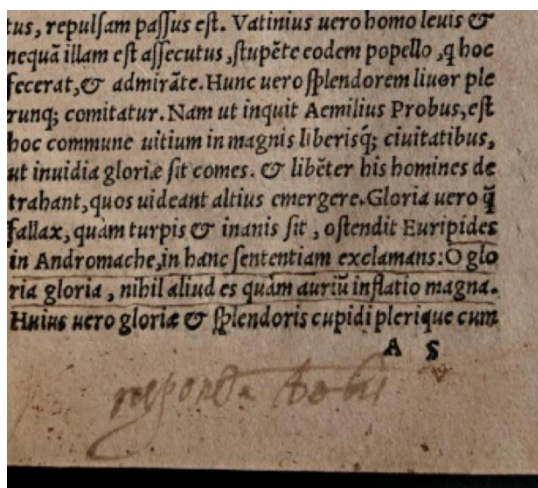 tus, repulſam paſſus eſt. Vatinius uero homo leuis &
nequā illam eſt aſſecutus, ſtupēte eodem popello, q hoc
fecerat, & admirāte. Hunc uero ſplendorem liuor ple
runq; comitatur. Nam ut inquit Aemilius Probus, eſt
hoc commune uitium in magnis liberisq́; ciuitatibus,
ut inuidia gloriæ ſit comes. & libēter his homines de
trahant, quos uideant altius emergere. Gloria uero q̄
fallax, quàm turpis & inanis ſit, oſtendit Euripides
in Andromache, in hanc ſententiam exclamans: O glo
ria gloria, nihil aliud es quàm auriū inflatio magna.
Huius uero gloriæ & ſplendoris cupidi plerique cum
A 5